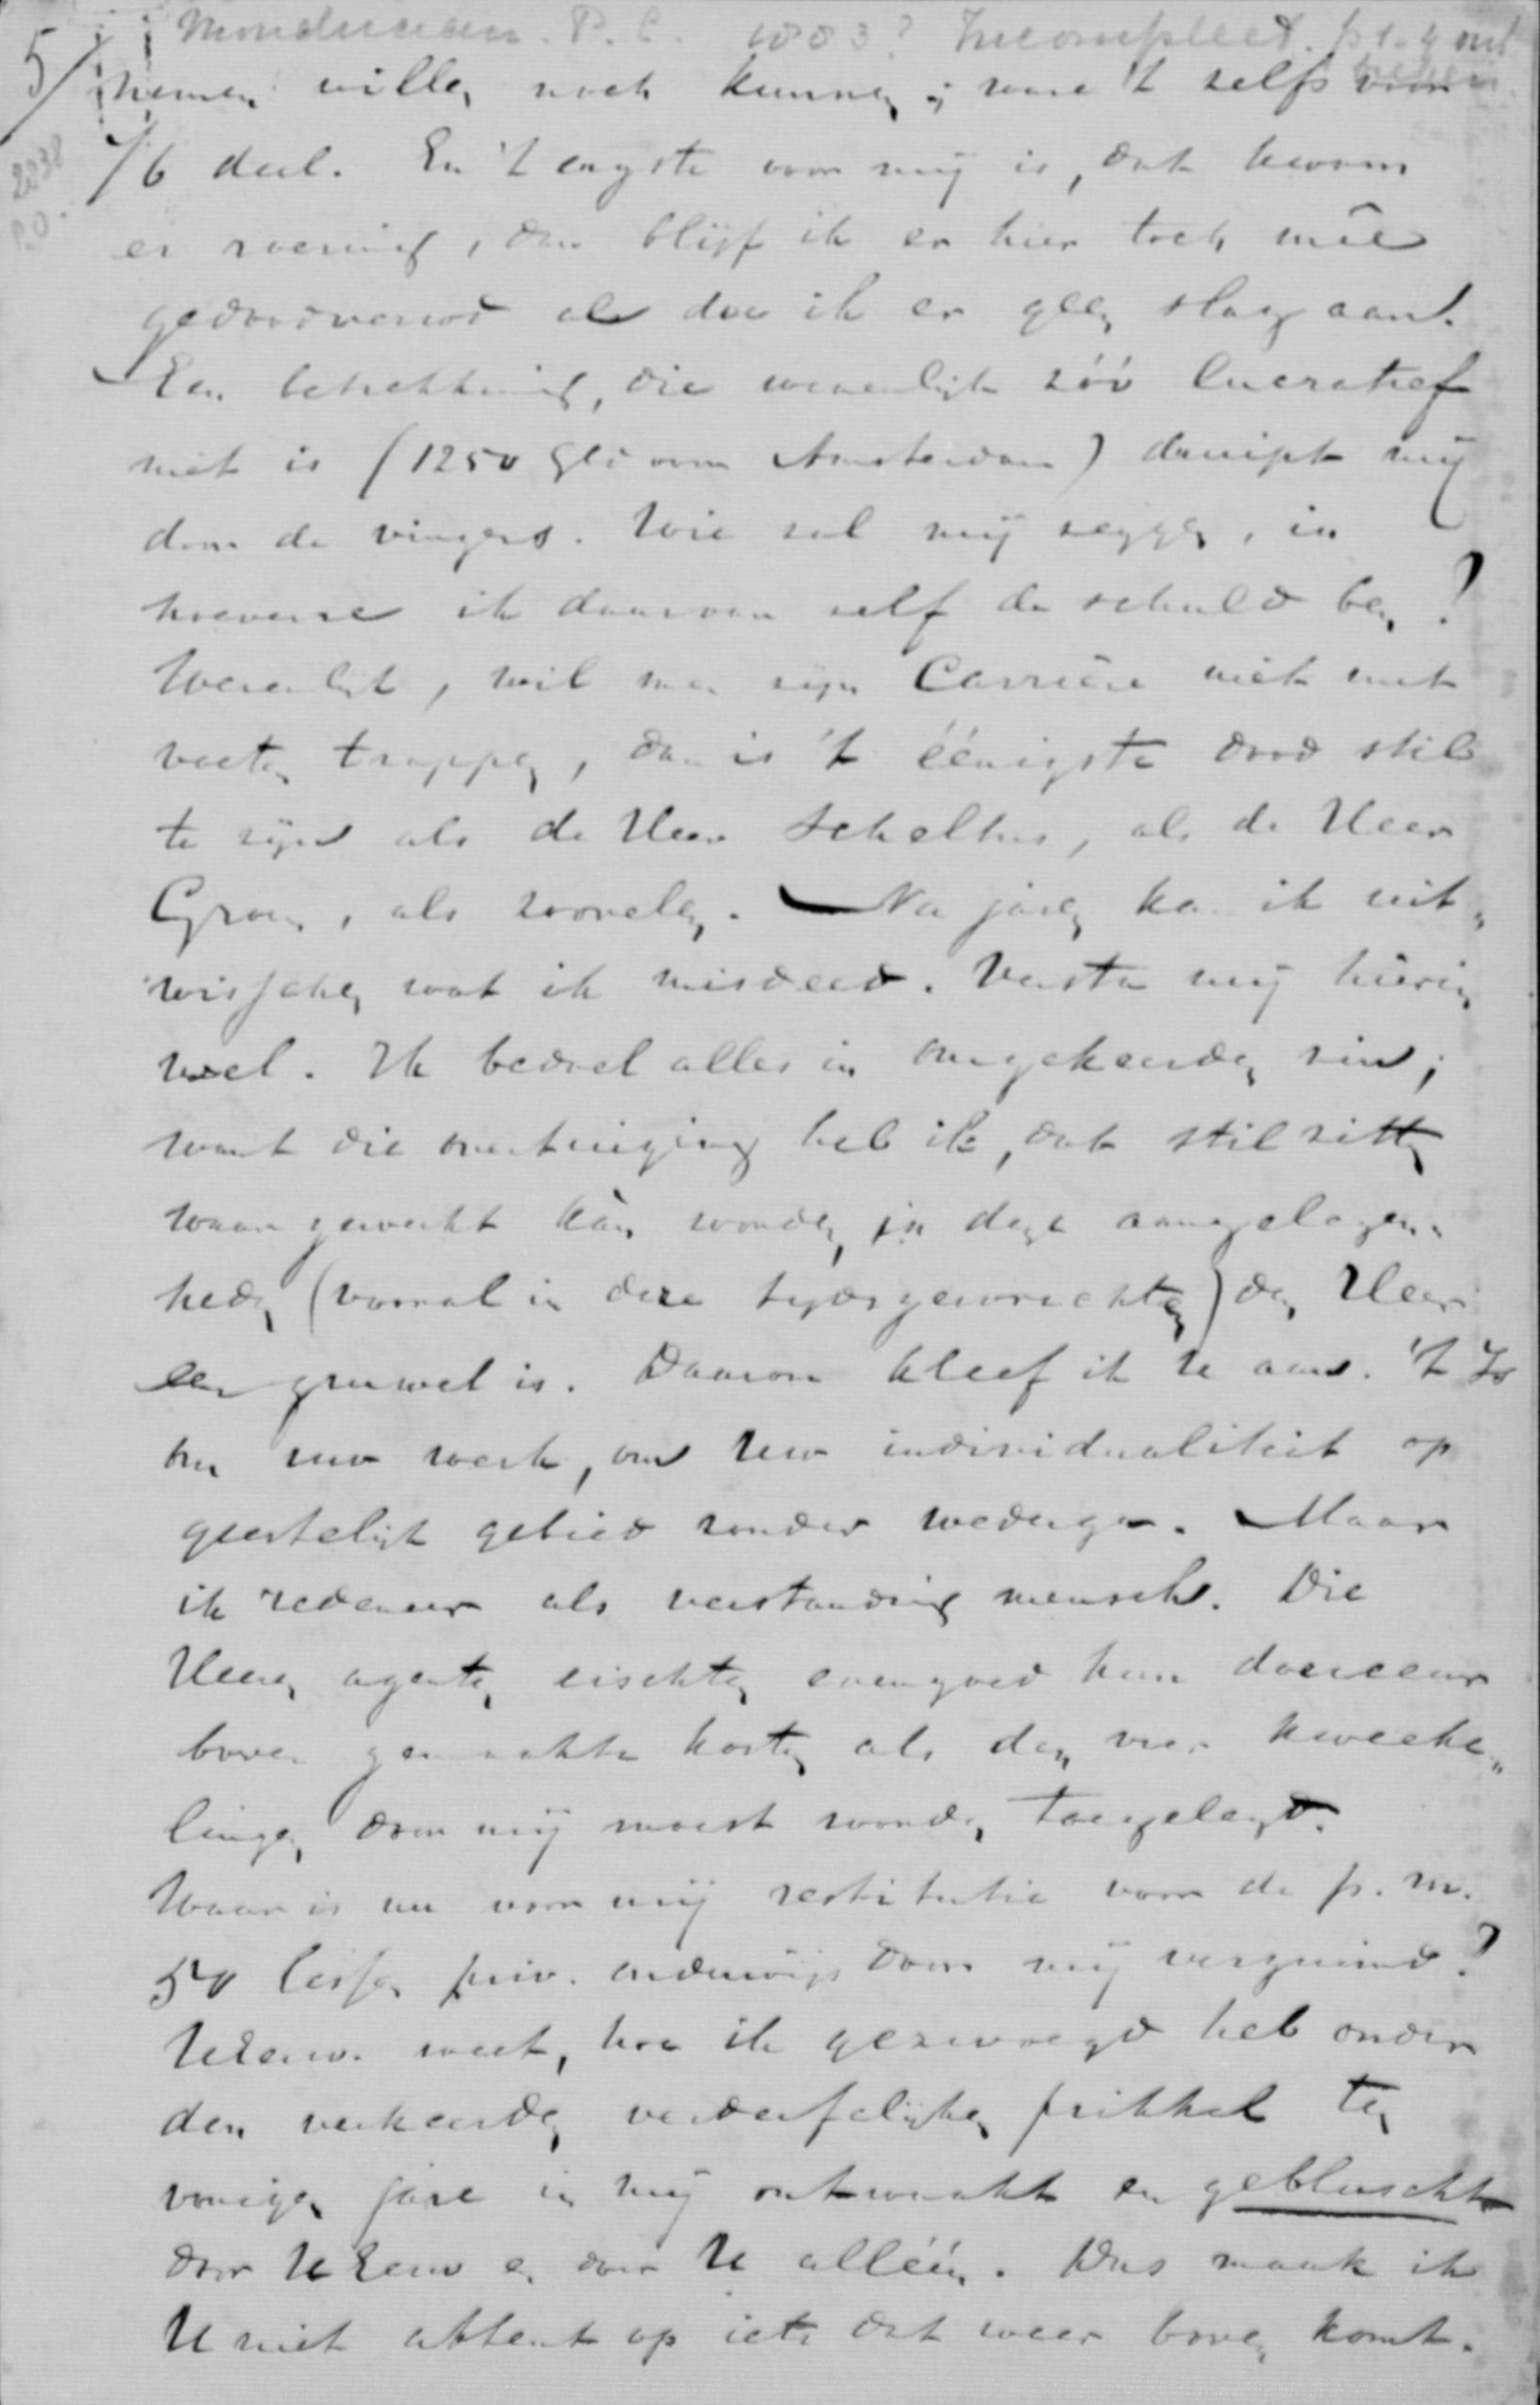 Mondriaan. P. C. 1883? Incompleet. p 1-4 ont
breken
5/ nemen willen noch kunnen; ware 't zelfs voor
2038 P.O.
1/6 deel. En 't ergste voor mij is, dat kwam
er roering, dan blijf ik er hier toch meê
gedoodverwd al doe ik er geen slag aan.
Een betrekking, die wezenlijk zóó lucratief
niet is (1250 gld voor Amsterdam) druipt mij
door de vingers. Wie zal mij zeggen, in
hoeverre ik daarvan zelf de schuld ben?
Wezenlijk, wil men zijn Carrière niet met
voeten trappen, dan is 't éénigste dood stil
te zijn als de Heer Scheltus, als de Heer
Groen, als zoovelen. Na jaren kan ik uit„
wisschen wat ik misdeed. Versta mij hierin
wel. Ik bedoel alles in omgekeerden zin;
want die overtuiging heb ik, dat stil zitten
waar gewerkt kàn worden, in deze aangelegen„
heden (vooral in deze tijdsgewrichten) den Heer
een gruwel is. Daarom kleef ik U aan. 't Is
om uw werk, om Uw individualiteit op
geestelijk gebied zonder wederga. Maar
ik redeneer als verstandig mensch. Die
Heeren agenten eischten evengoed hun douceur
boven gemaakte kosten als den vier kweeke„
lingen door mij moest worden toegelegd.
Waar is nu voor mij restitutie voor de p. m.
50 lessen priv. onderwijs door mij verzuimd?
UEerw. weet, hoe ik gezwoegd heb onder
den verkeerden verderfelijken prikkel ten
vorigen jare in mij ontwaakt en gebluscht
door UEerw en door U alléén. Dus maak ik
U niet attent op iets dat weer boven komt.